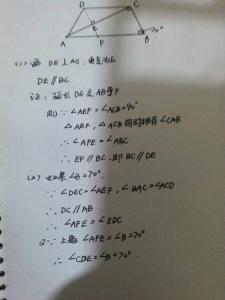 D
C
E
A
F
B
70°
(1) 画 DE⊥AC, 垂足为E
DE∥BC
证: 延长DE交AB于F
则∵∠AEF=∠ACB=90°
△AEF, △ACB 同时拥有∠CAB
∴∠AFE=∠ABC
∴EF∥BC, 即BC∥DE
(2) 如果∠B=70°
∵∠DEC=∠AEF, ∠BAC=∠ACD
∴DC∥AB
∴∠AFE=∠EDC
又∵上题∠AFE=∠B=70°
∴∠CDE=∠B=70°